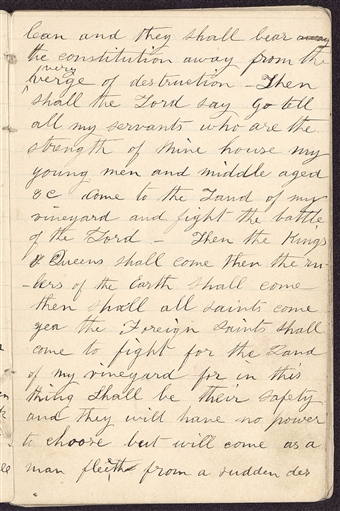 lean and they shall bear away
the constitution away from the
very
verge of destruction - Then
shall the Lord say Go tell
all my servants who are the
strength of mine house my
young men and middle aged
&c Come to the Land of my
vineyard and fight the battle
of the Lord - Then the Kings
& Queens shall come then the ru-
-lers of the Earth shall come
then shall all saints come
yea the Foreign saints shall
come to fight for the Land
of my vineyard for in this
thing shall be their safety
and they will have no power
to choose but will come as a
man fleeth from a sudden des